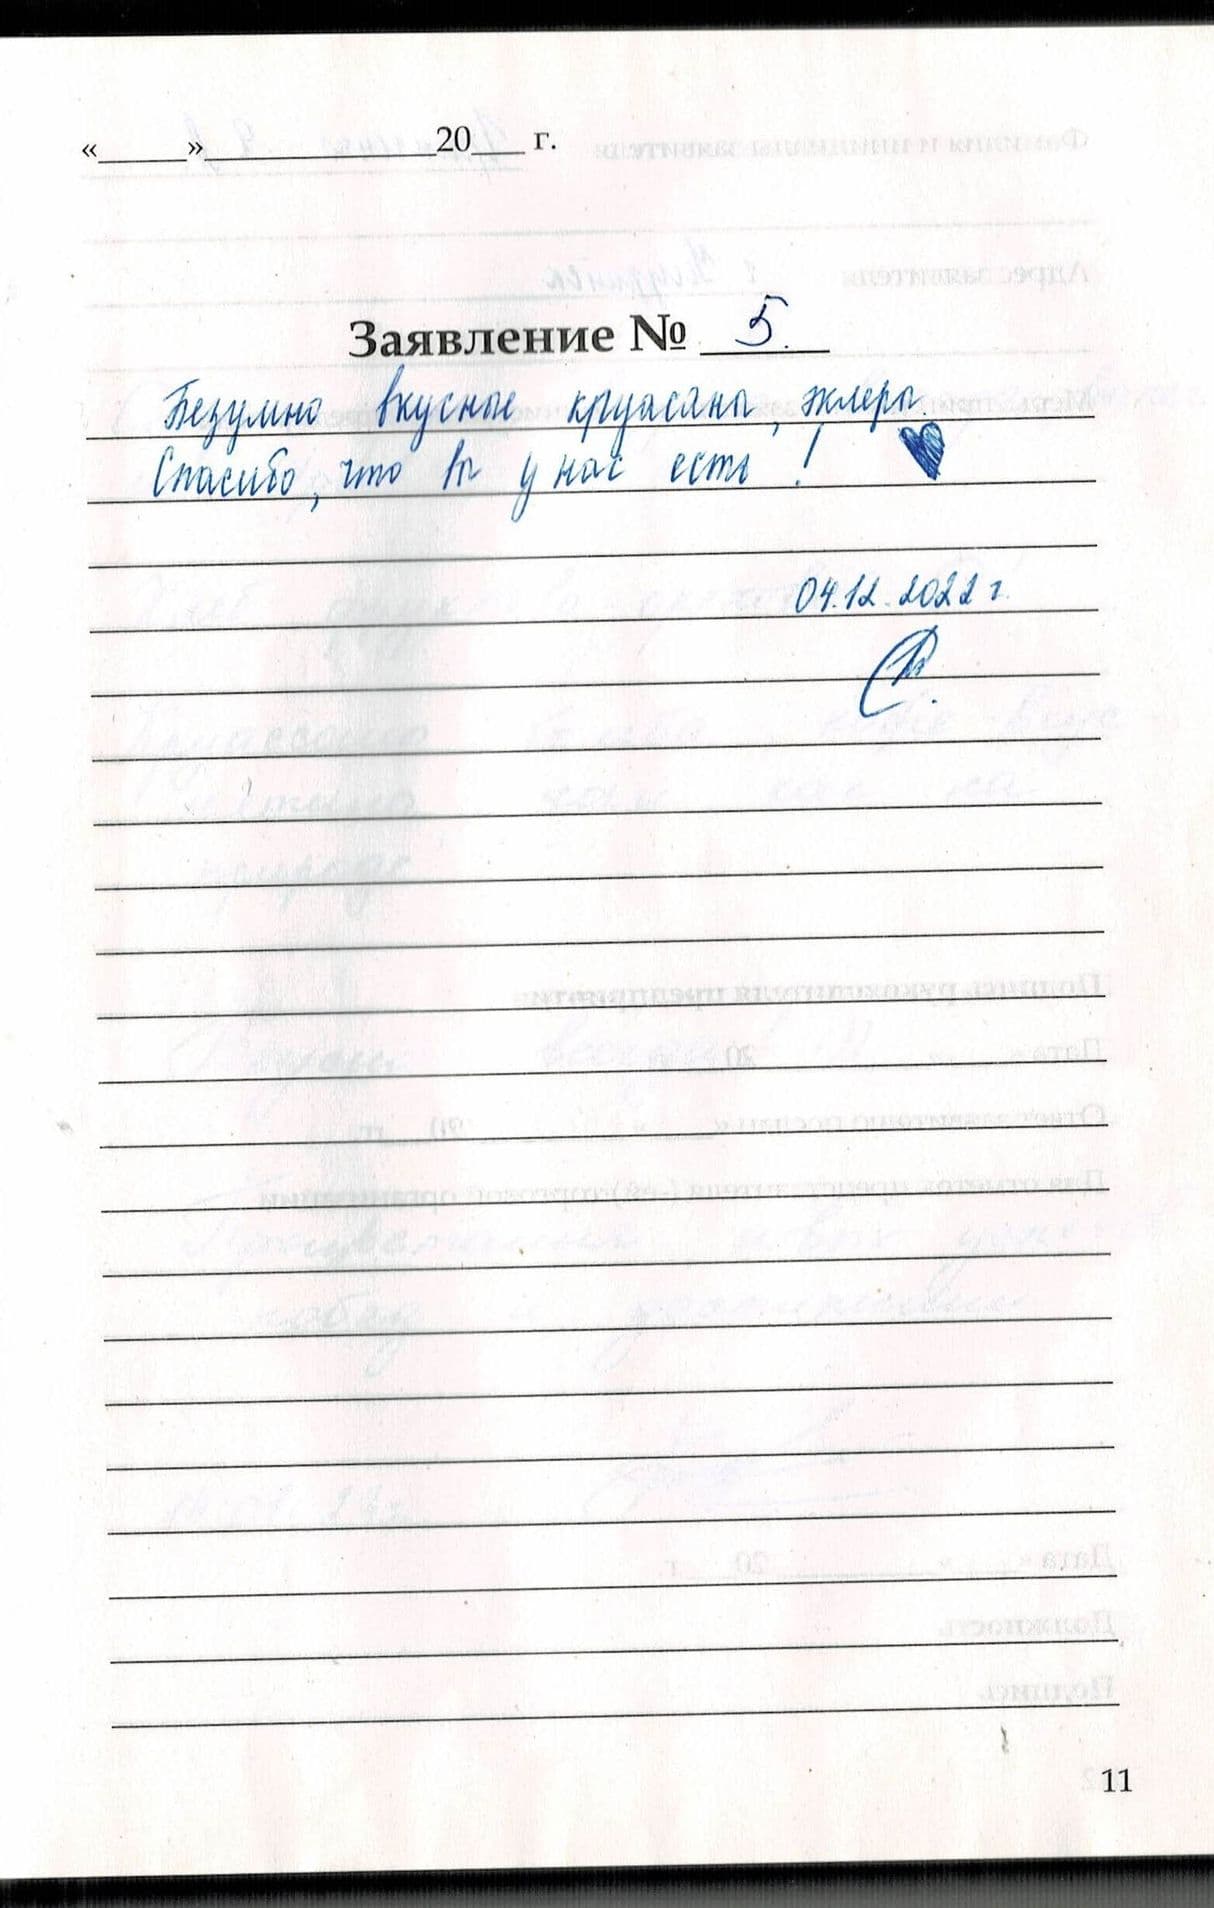 «______»____________20___ г.
Заявление № 5.
Безумно вкусные круасаны, эклеры
Спасибо, что вы у нас есть!
04.12.2022 г.
11